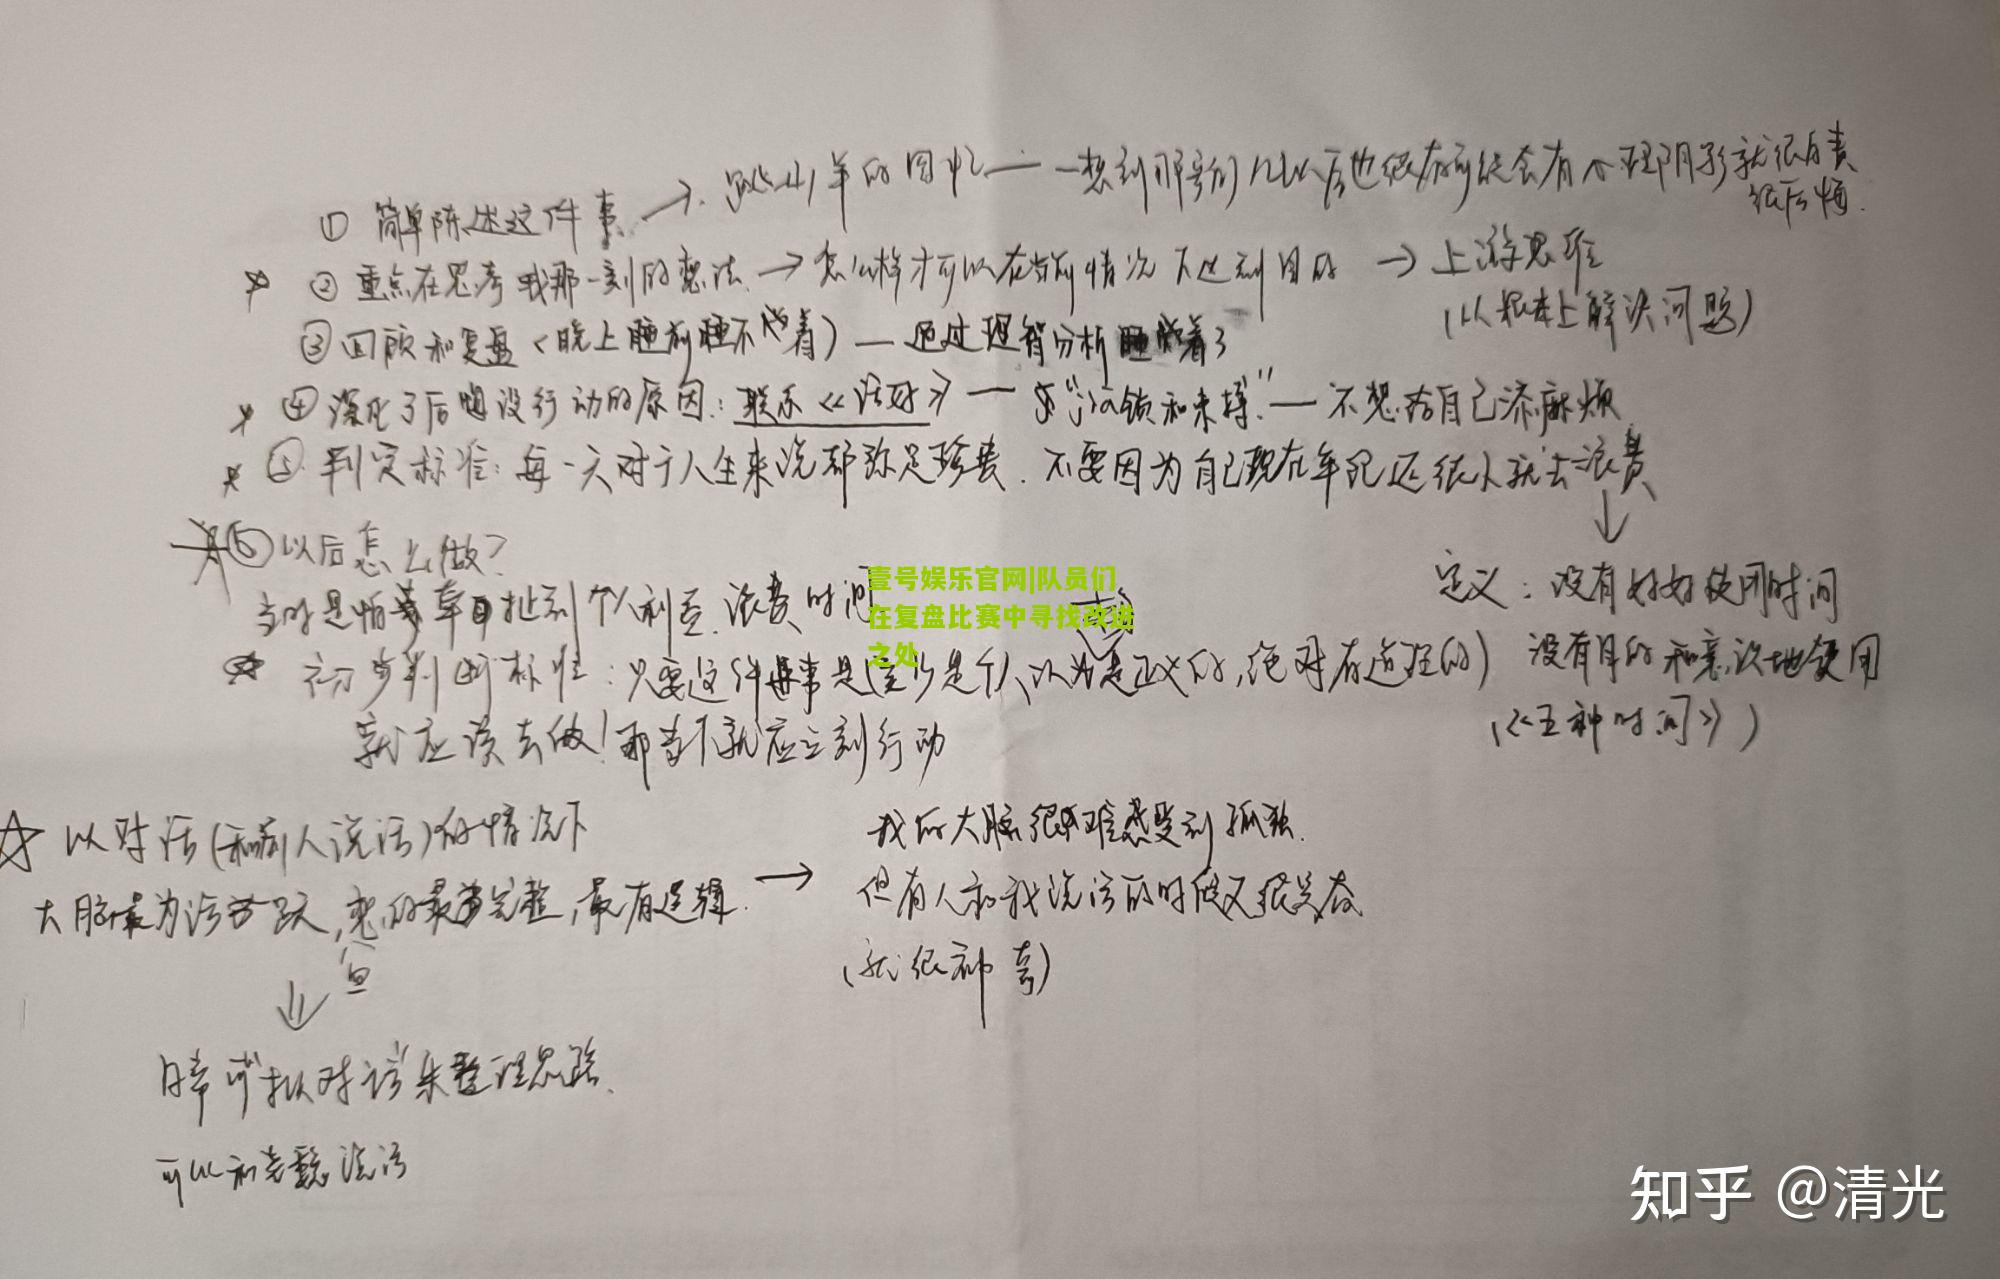 ① 简单陈述这件事 → 的回忆 — 一想到那 以后也很有可能会有心理阴影就很自责
很后悔.
② 重点在思考我那一刻的想法 → 怎么样才可以在当前情况下达到目的 → 上游思维
(从根本上解决问题)
③ 回顾和复盘(晚上睡前睡不着) — 通过理智分析睡着了
④ 深化了后悔没行动的原因: 联系《活好》 — 不想给自己添麻烦
⑤ 判定标准: 每一天对于人生来说都弥足珍贵. 不要因为自己现在年纪还很小就去浪费
↓
⑥ 以后怎么做?
定义: 没有好好使用时间
当时是怕 牵扯到个人利益. 浪费时间
没有目的和意识地使用
(《五种时间》)
初步判断标准: 只要这件事是(至少是个人以为是正义的, 绝对有道理的)
就应该去做! 那当下就应立刻行动
壹号娱乐官网|队员们
在复盘比赛中寻找改进
之处
☆ 以对话(和别人说话)的情况下
大脑最为活跃, 想的最完整, 最有逻辑.
→ 我的大脑很难感受到孤独.
但有人和我说话的时候又很兴奋
(就很神奇)
↓
对话来整理思路.
可以和 说话
知乎 @清光